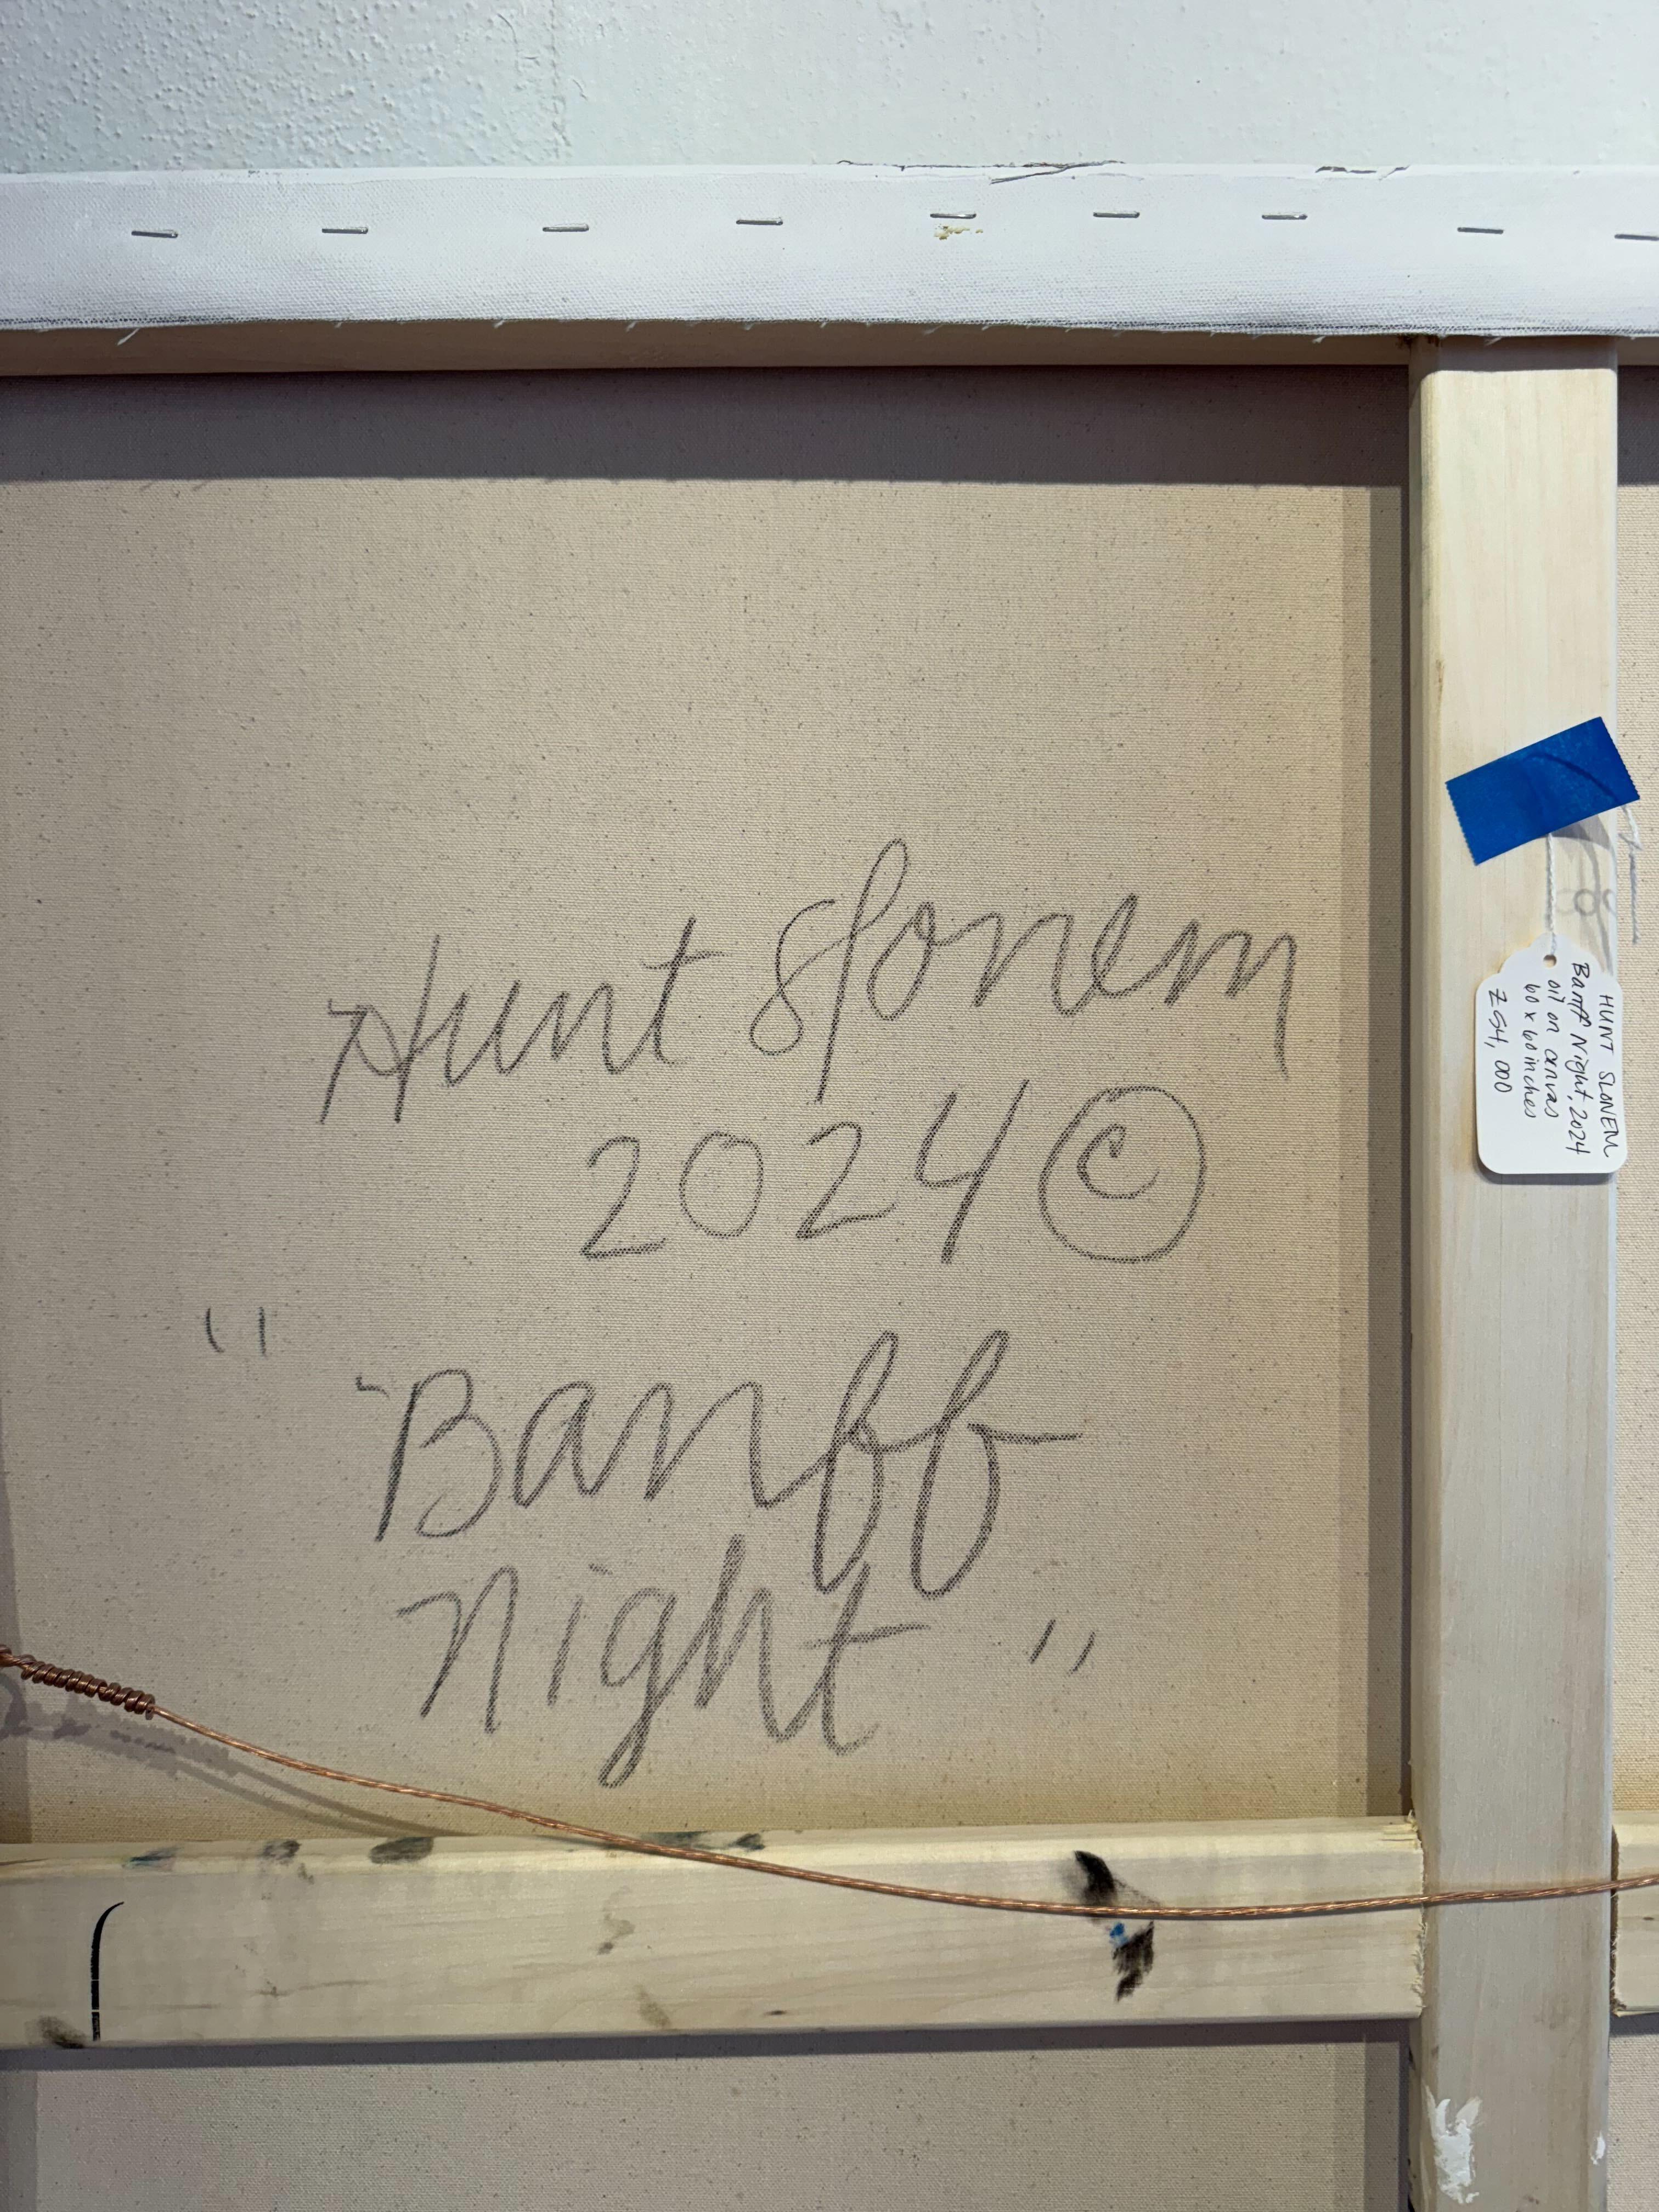 Hunt Slonem
2024 ©
"Banff
Night"
HUNT SLONEM
Banff Night, 2024
oil on canvas
60 x 60 inches